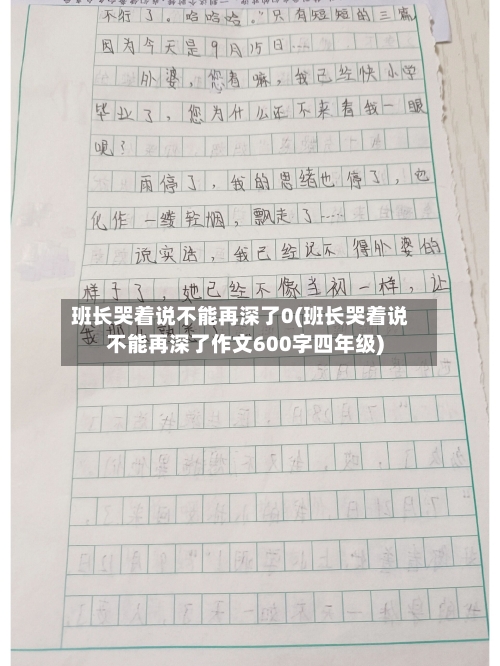 不行了。哈哈哈。”只有短短的三篇
因为今天是9月15日...
外婆，您看嘛，我已经快小学
毕业了，您为什么还不来看我一眼
呢？
雨停了，我的思绪也停了，它
化作一缕轻烟，飘走了...
说实话，我已经记不得外婆的
样子了，她已经不像当初一样，让
班长哭着说不能再深了0(班长哭着说
不能再深了作文600字四年级)